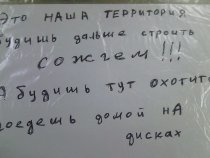 Это НАША ТЕРРИТОРИЯ
будишь дальше строить
сожгем !!!
будишь тут охотит
поедешь домой нА
дисках